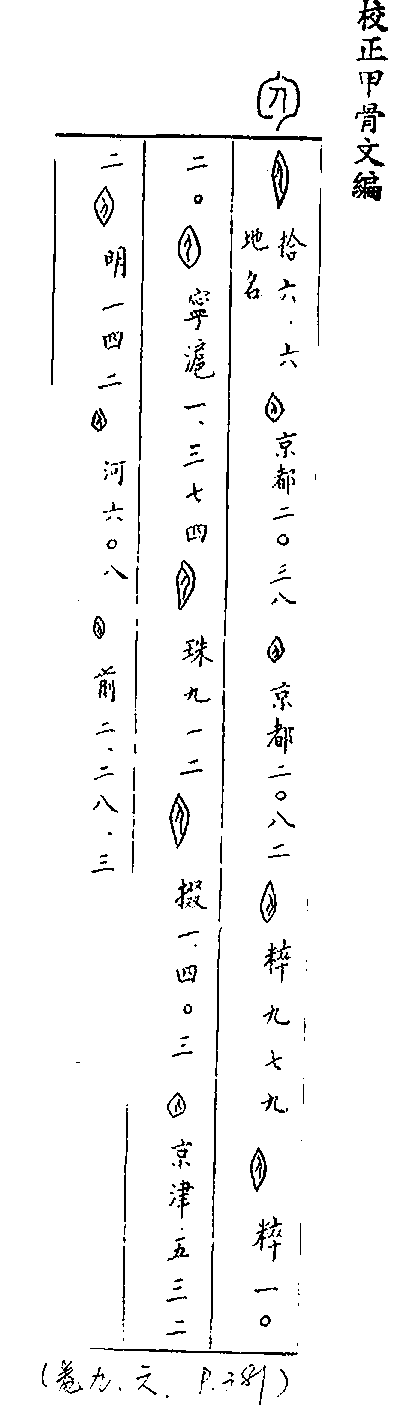 校正甲骨文編
拾六·六 地名 京都二〇三八 京都二〇八二 粹九七九 粹一〇
二〇 寧滬一、三七四 珠九一二 掇一、四〇三 京津·五三二
二 明一四二 河六〇八 前二、二八·三
(卷九、六、P.381)